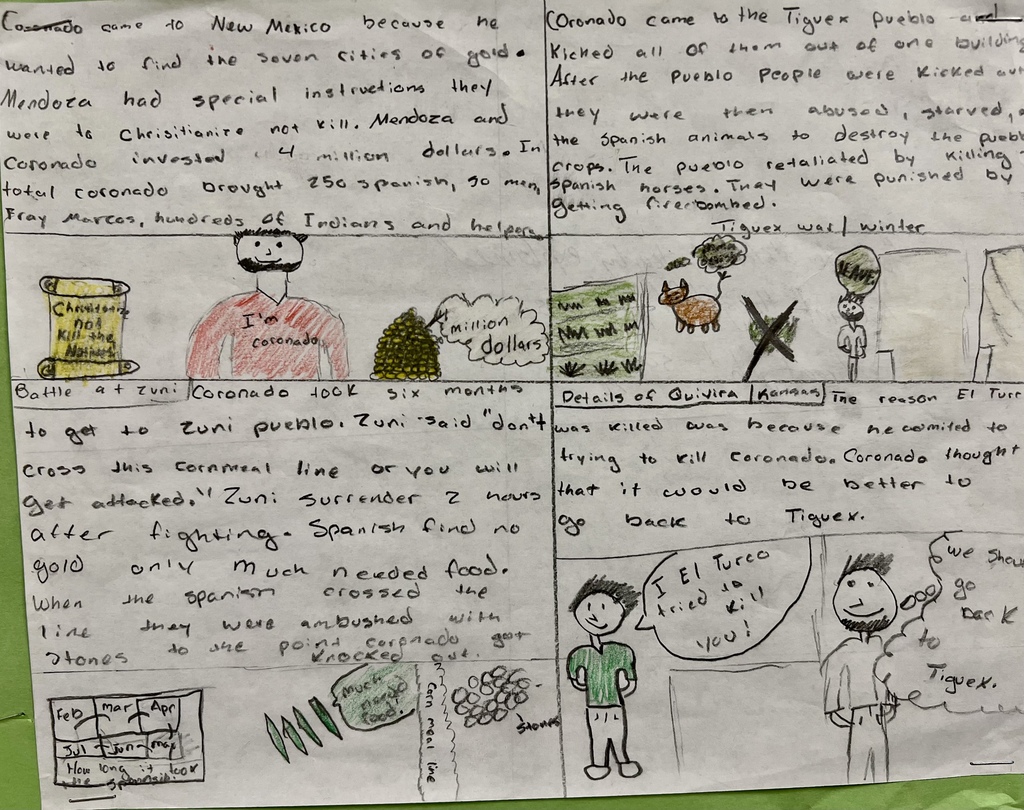 Coronado came to New Mexico because he
wanted to find the seven cities of gold.
Mendoza had special instructions they
were to Chrisitianize not kill. Mendoza and
Coronado invested 4 million dollars. In
total coronado brought 250 spanish, 50 men,
Fray Marcos, hundreds of Indians and helpers
Christianize
not
Kill the
Natives
I'm
coronado
million
dollars
Coronado came to the Tiguex pueblo and
Kicked all of them out of one building
After the pueblo people were kicked out
they were then abused, starved,
the Spanish animals to destroy the pueblo
crops. The pueblo retaliated by killing
Spanish horses. They were punished by
getting firebombed.
Tiguex war/winter
LEAVE!
Battle at Zuni Coronado took six months
to get to Zuni pueblo. Zuni said "don't
cross this cornmeal line or you will
get attacked." Zuni surrender 2 hours
after fighting. Spanish find no
gold only much needed food.
When the spanish crossed the
line they were ambushed with
stones to the point coronado got
knocked out.
Feb mar Apr
Jul Jun may
How long it took
the spanish
much
needed
food.
Corn meal line
stones
Details of Quivira Kansas The reason El Turc
was killed was because he comited to
trying to kill coronado. Coronado thought
that it would be better to
go back to Tiguex.
I El Turco
tried to
kill
you!
we shou
go
back
to
Tiguex.